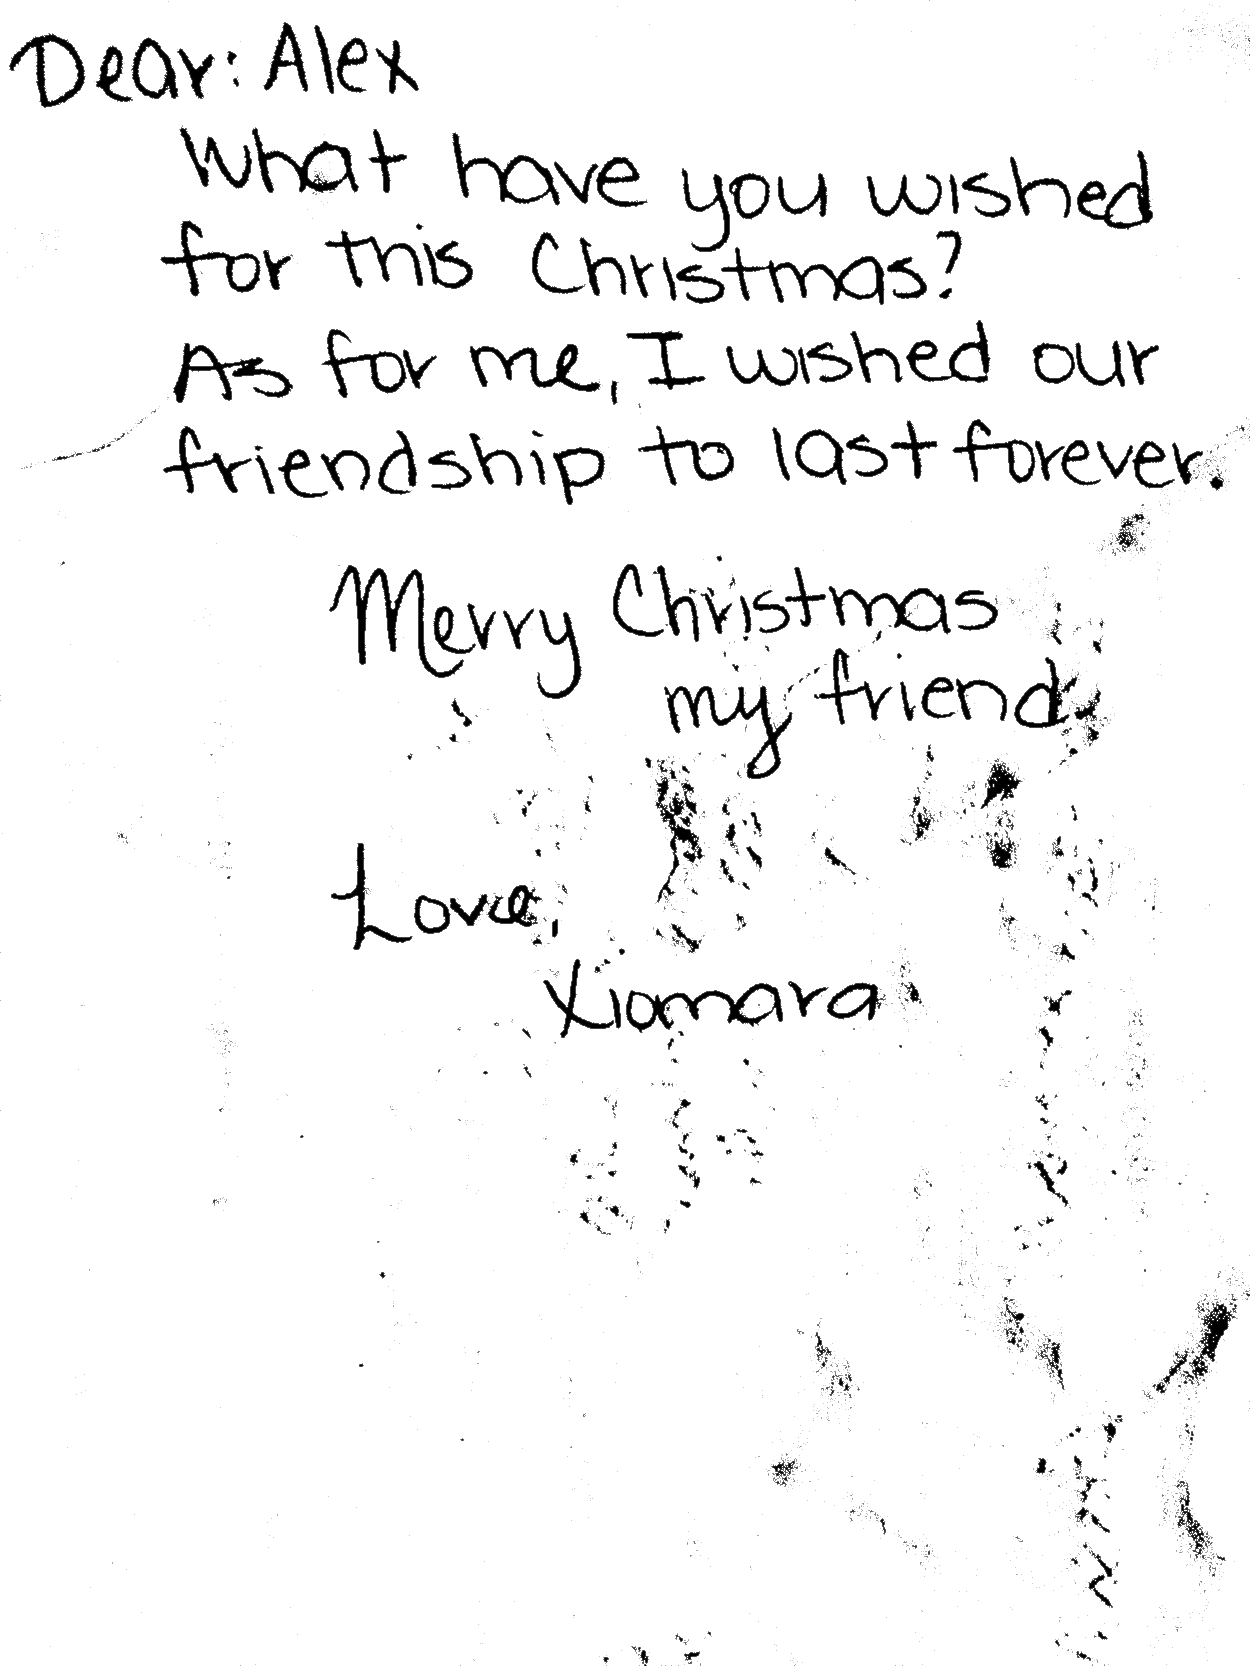 Dear: Alex
What have you wished
for this Christmas?
As for me, I wished our
friendship to last forever.
Merry Christmas
my friend.
Love,
Xiomara